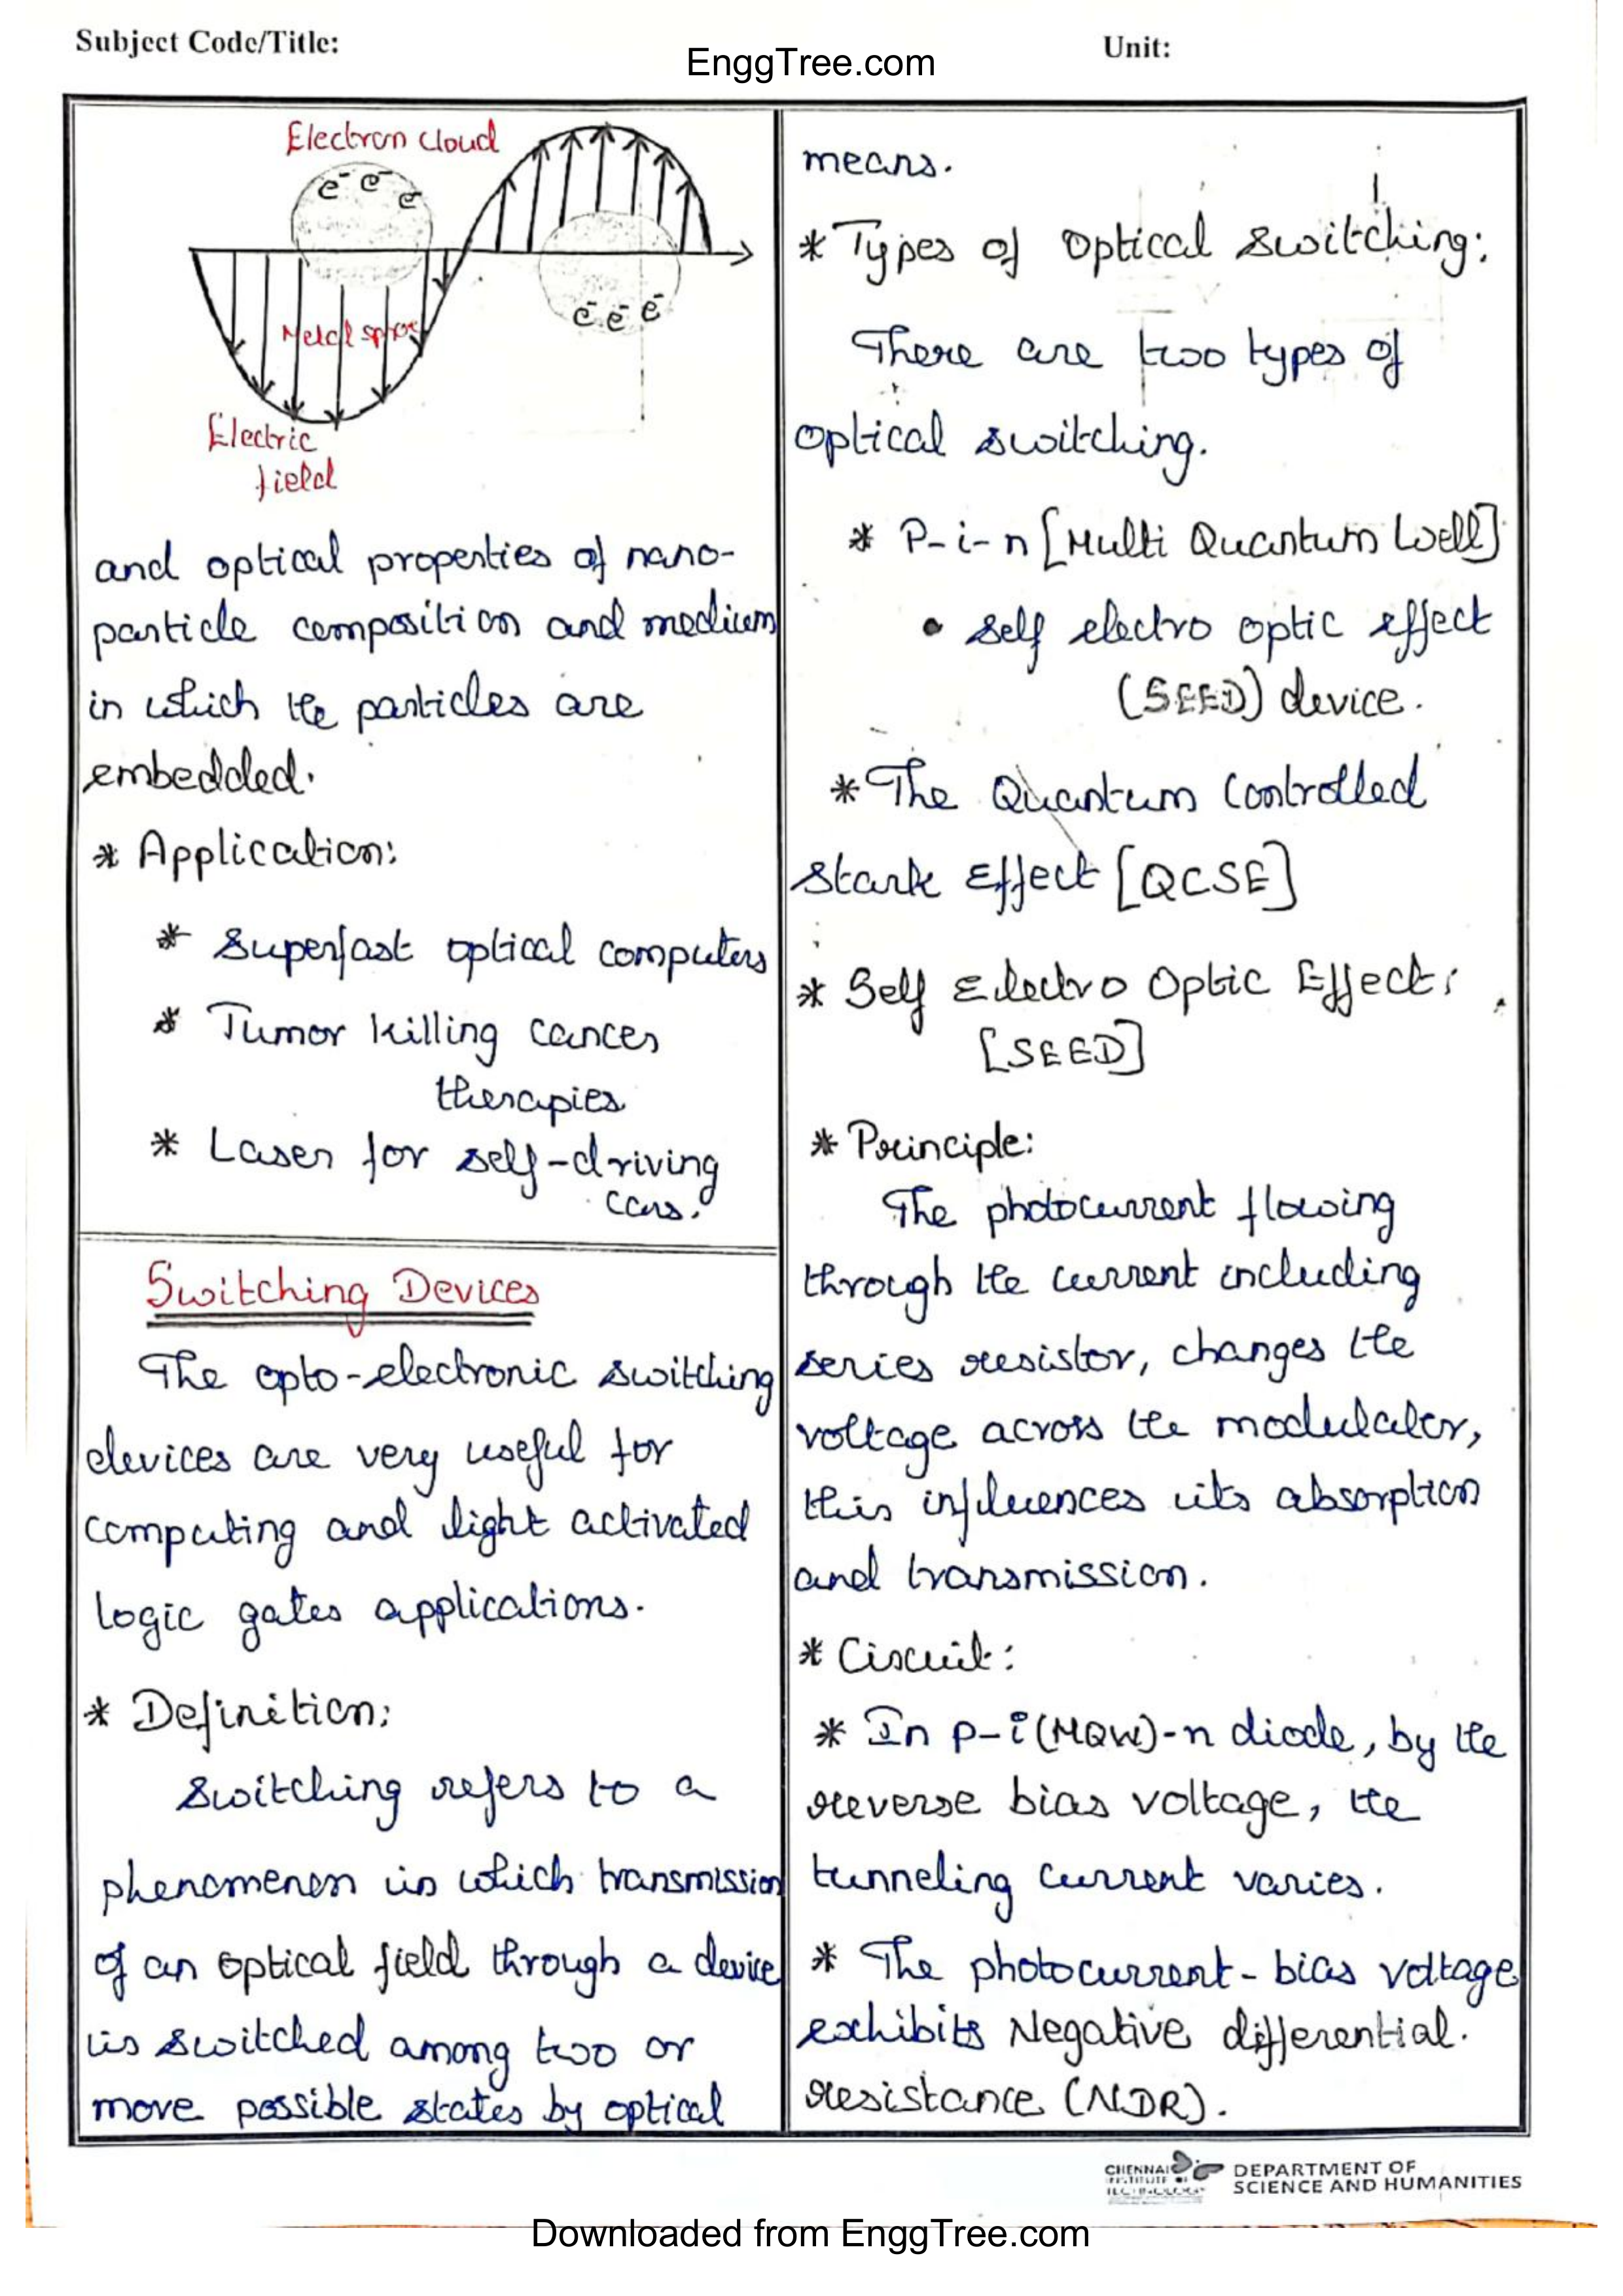 Subject Code/Title:
EnggTree.com
Unit:
Electron cloud
e⁻ e⁻ e⁻
e⁻ e⁻ e⁻
Metal
Electric
field
and optical properties of nano-
particle composition and medium
in which the particles are
embedded.
* Application:
* Superfast optical computers
* Tumor killing cances
therapies
* Laser for self-driving
cars.
Switching Devices
The opto-electronic switching
devices are very useful for
computing and light activated
logic gates applications.
* Definition:
Switching refers to a
phenomenon in which transmission
of an optical field through a device
is switched among two or
more possible states by optical
means.
* Types of Optical Switching:
There are two types of
optical switching.
* P-i-n [Multi Quantum Well]
• Self electro optic effect
(SEED) device.
* The Quantum Controlled
Stark Effect [QCSE]
* Self Electro Optic Effect:
[SEED]
* Principle:
The photocurrent flowing
through the current including
series resistor, changes the
voltage across the modulator,
this influences its absorption
and transmission.
* Circuit:
* In P-i(MQW)-n diode, by the
reverse bias voltage, the
tunneling current varies.
* The photocurrent-bias voltage
exhibits Negative differential.
resistance (NDR).
CHENNAI
DEPARTMENT OF
SCIENCE AND HUMANITIES
Downloaded from EnggTree.com